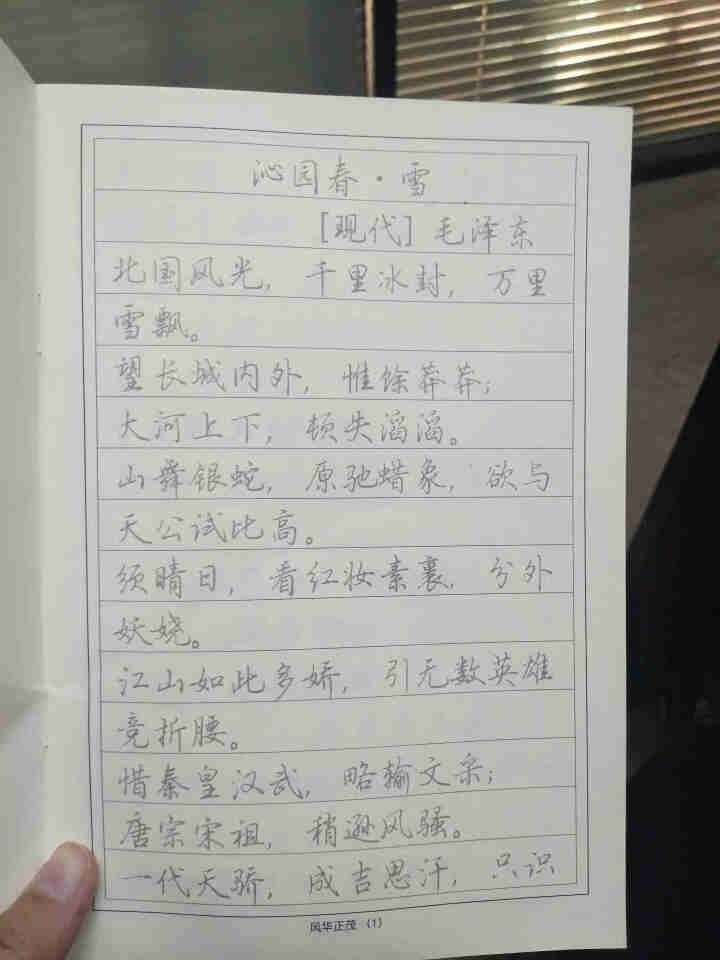 沁园春·雪
[现代] 毛泽东
北国风光，千里冰封，万里
雪飘。
望长城内外，惟馀莽莽；
大河上下，顿失滔滔。
山舞银蛇，原驰蜡象，欲与
天公试比高。
须晴日，看红妆素裹，分外
妖娆。
江山如此多娇，引无数英雄
竞折腰。
惜秦皇汉武，略输文采；
唐宗宋祖，稍逊风骚。
一代天骄，成吉思汗，只识
风华正茂 （1）